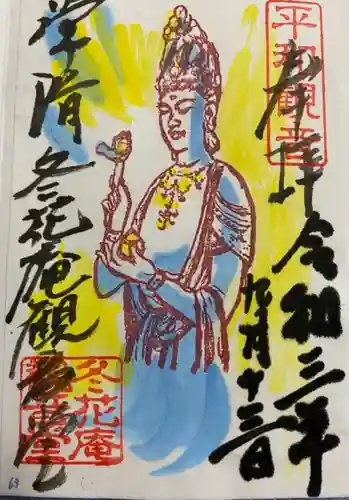 平和観音
奉拝 令和三年
九月十三日
冬花庵観音堂
冬花庵
63